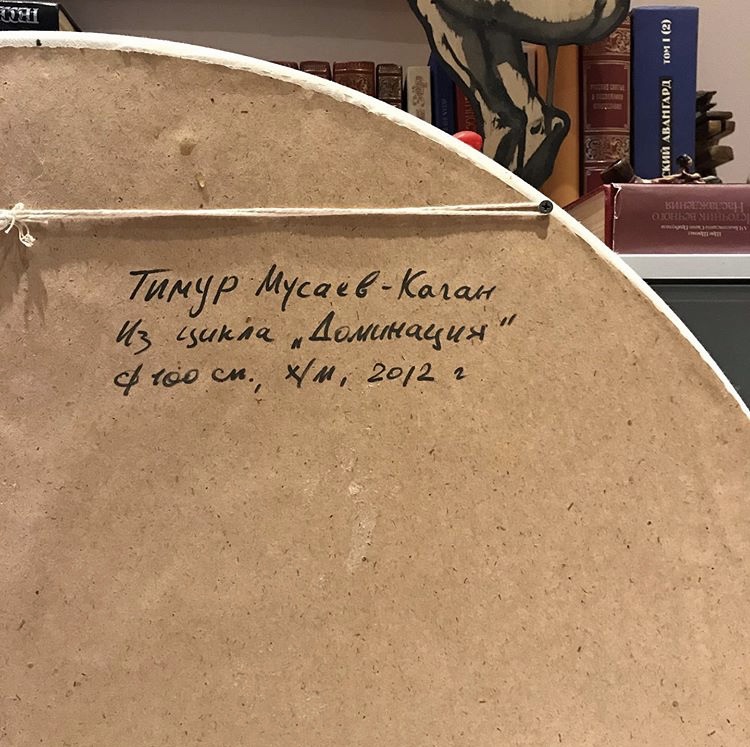 Тимур Мусаев-Каган
Из цикла „Доминация"
ф 100 см., х/м, 2012 г
ТОМ I (2)
СКИЙ АВАНГАРД
СТОЧНИК ВЕЧНОГО
НАСЛАЖДЕНИЯ